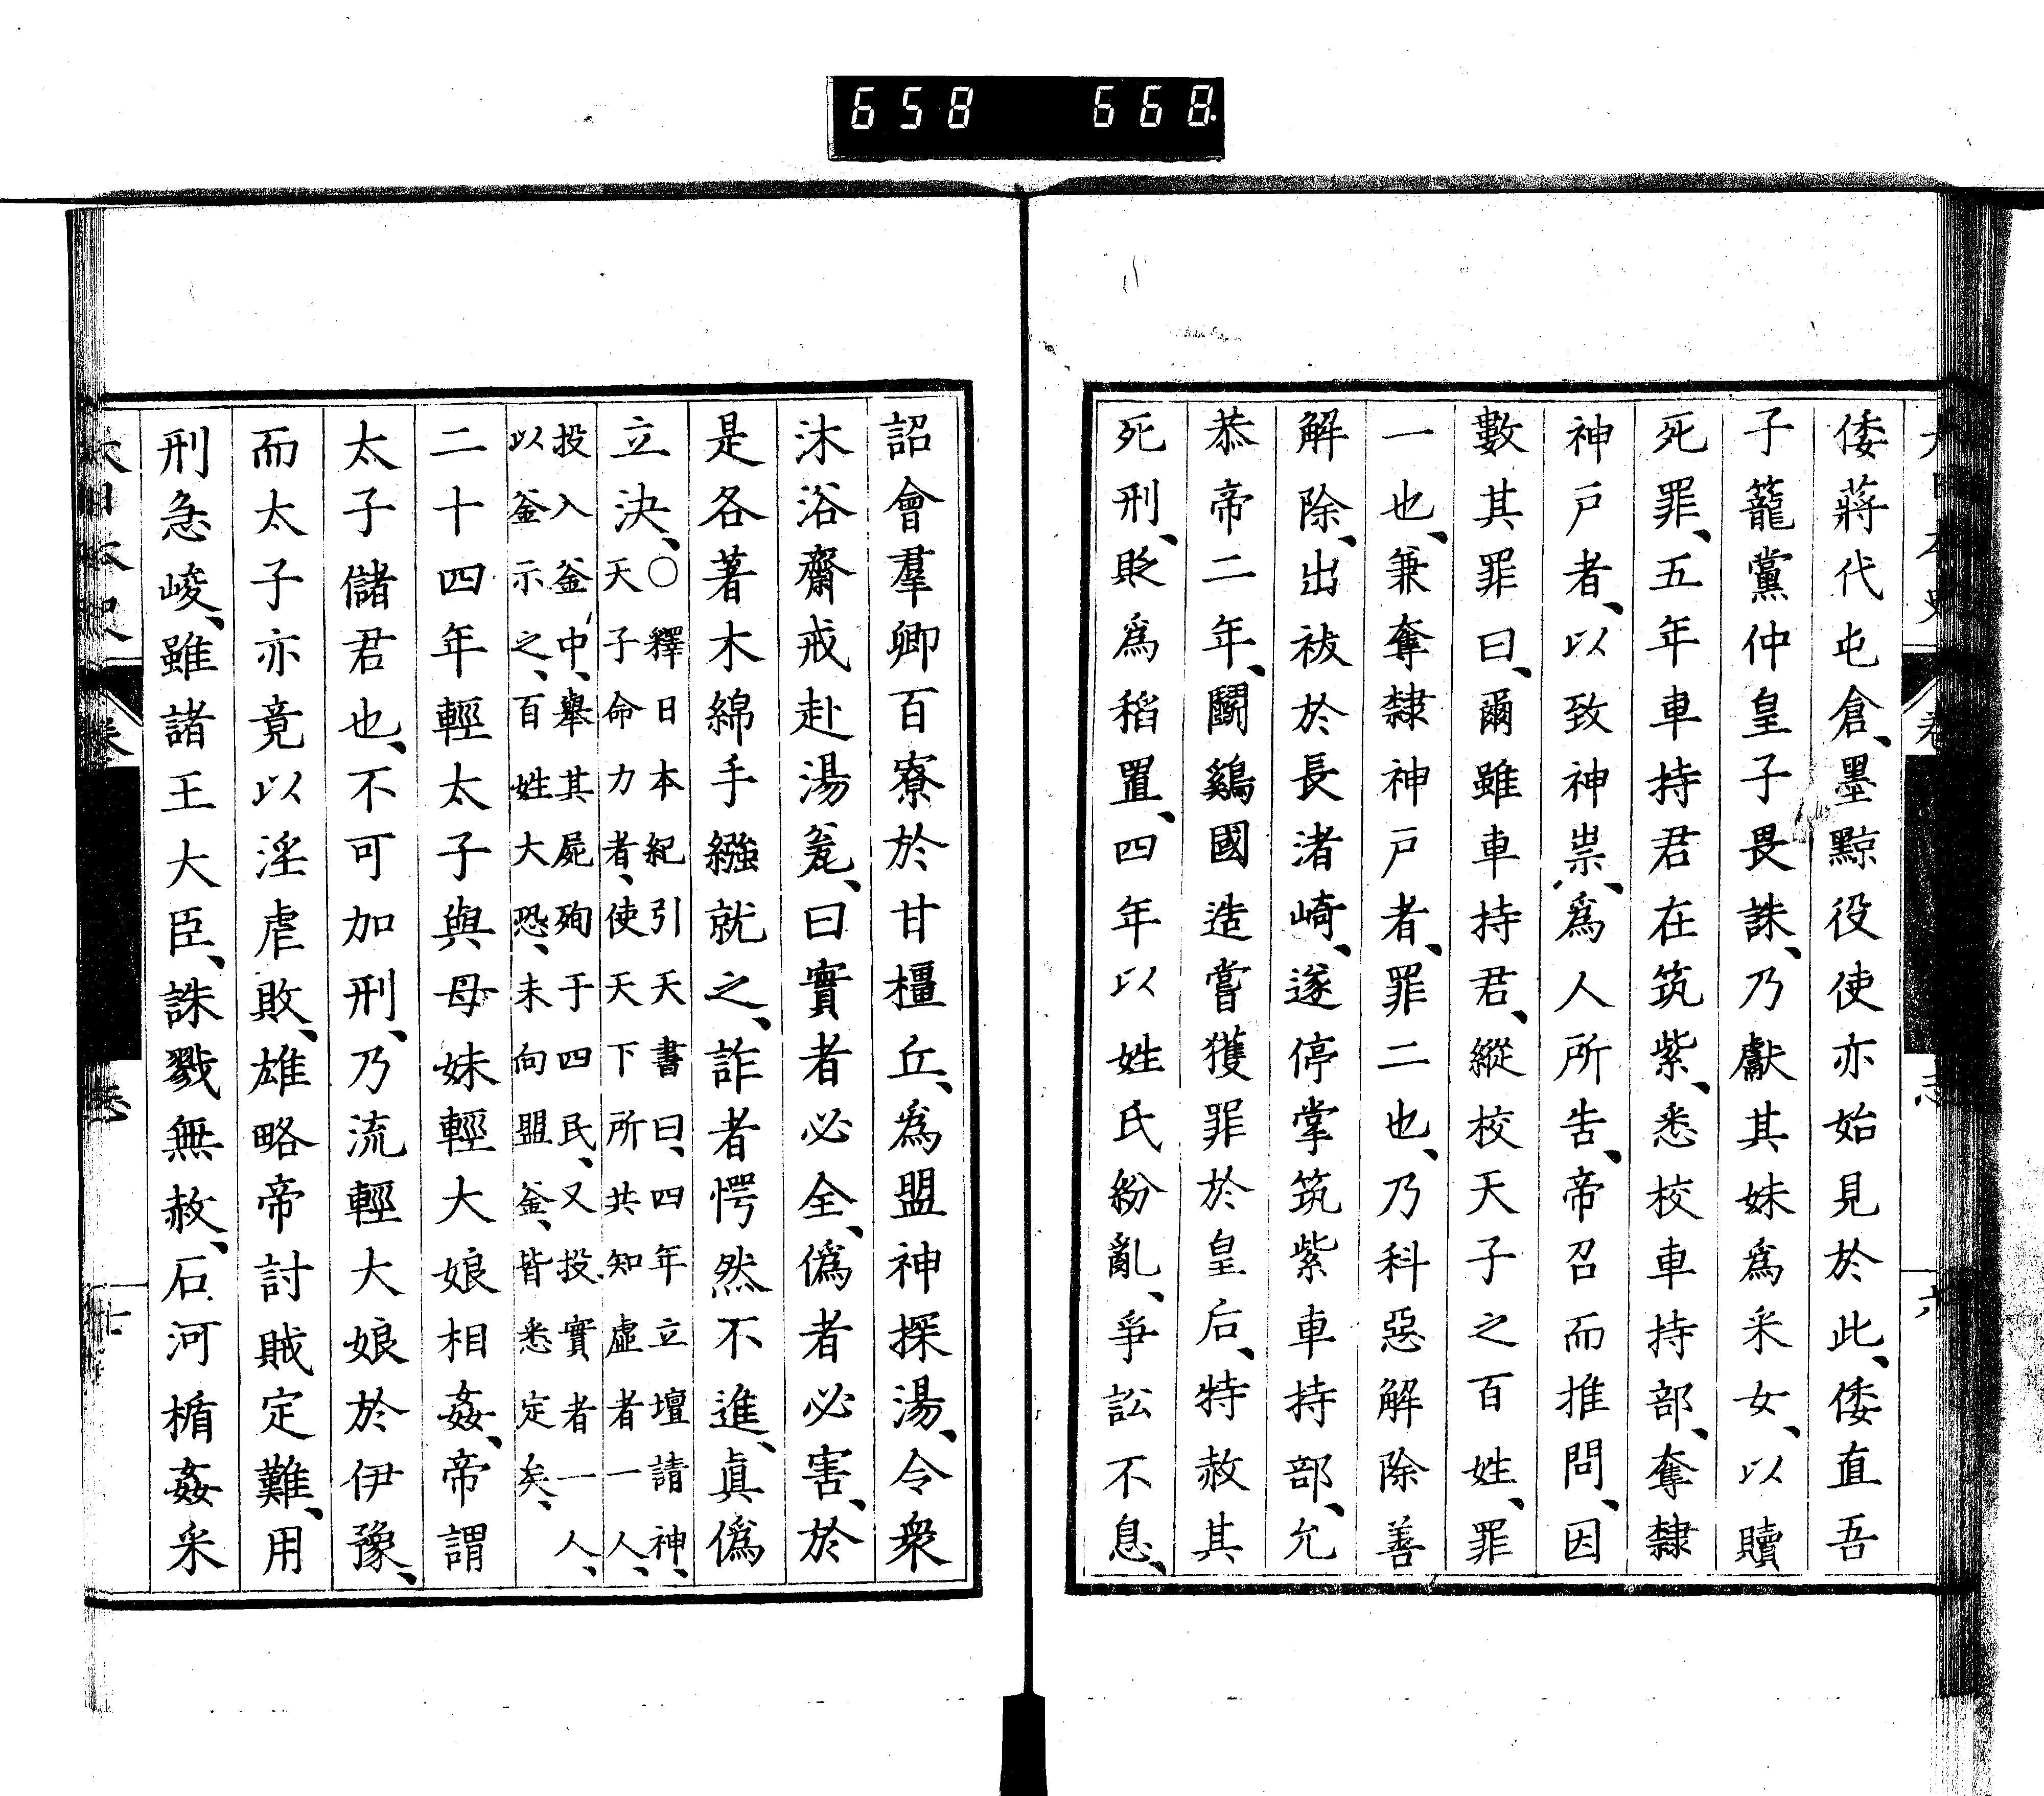 658 668.
倭蔣代屯倉、墨黥役使亦始見於此、倭直吾
子籠黨仲皇子畏誅、乃獻其妹爲釆女、以贖
死罪、五年車持君在筑紫、悉校車持部、奪隷
神戸者、以致神祟、爲人所吿、帝召而推問、因
數其罪曰、爾雖車持君、縱校天子之百姓、罪
一也、兼奪隷神戸者、罪二也、乃科惡解除善
解除、出祓於長渚崎、遂停掌筑紫車持部、允
恭帝二年、鬭鷄國造嘗獲罪於皇后、特赦其
死刑、貶爲稻置、四年以姓氏紛亂、爭訟不息、
詔會羣卿百寮於甘橿丘、爲盟神探湯、令衆
沐浴齋戒赴湯瓮、曰實者必全、僞者必害、於
是各著木綿手繦就之、詐者愕然不進、眞僞
立決、〇釋日本紀引天書曰、四年立壇請神、
天子命力者、使天下所共知虛者一人、
投入釜中、擧其屍殉于四民、又投實者一人、
以釜示之、百姓大恐、未向盟釜、皆悉定矣、
二十四年輕太子與母妹輕大娘相姦、帝謂
太子儲君也、不可加刑、乃流輕大娘於伊豫、
而太子亦竟以淫虐敗、雄略帝討賊定難、用
刑急峻、雖諸王大臣、誅戮無赦、石河楯姦釆